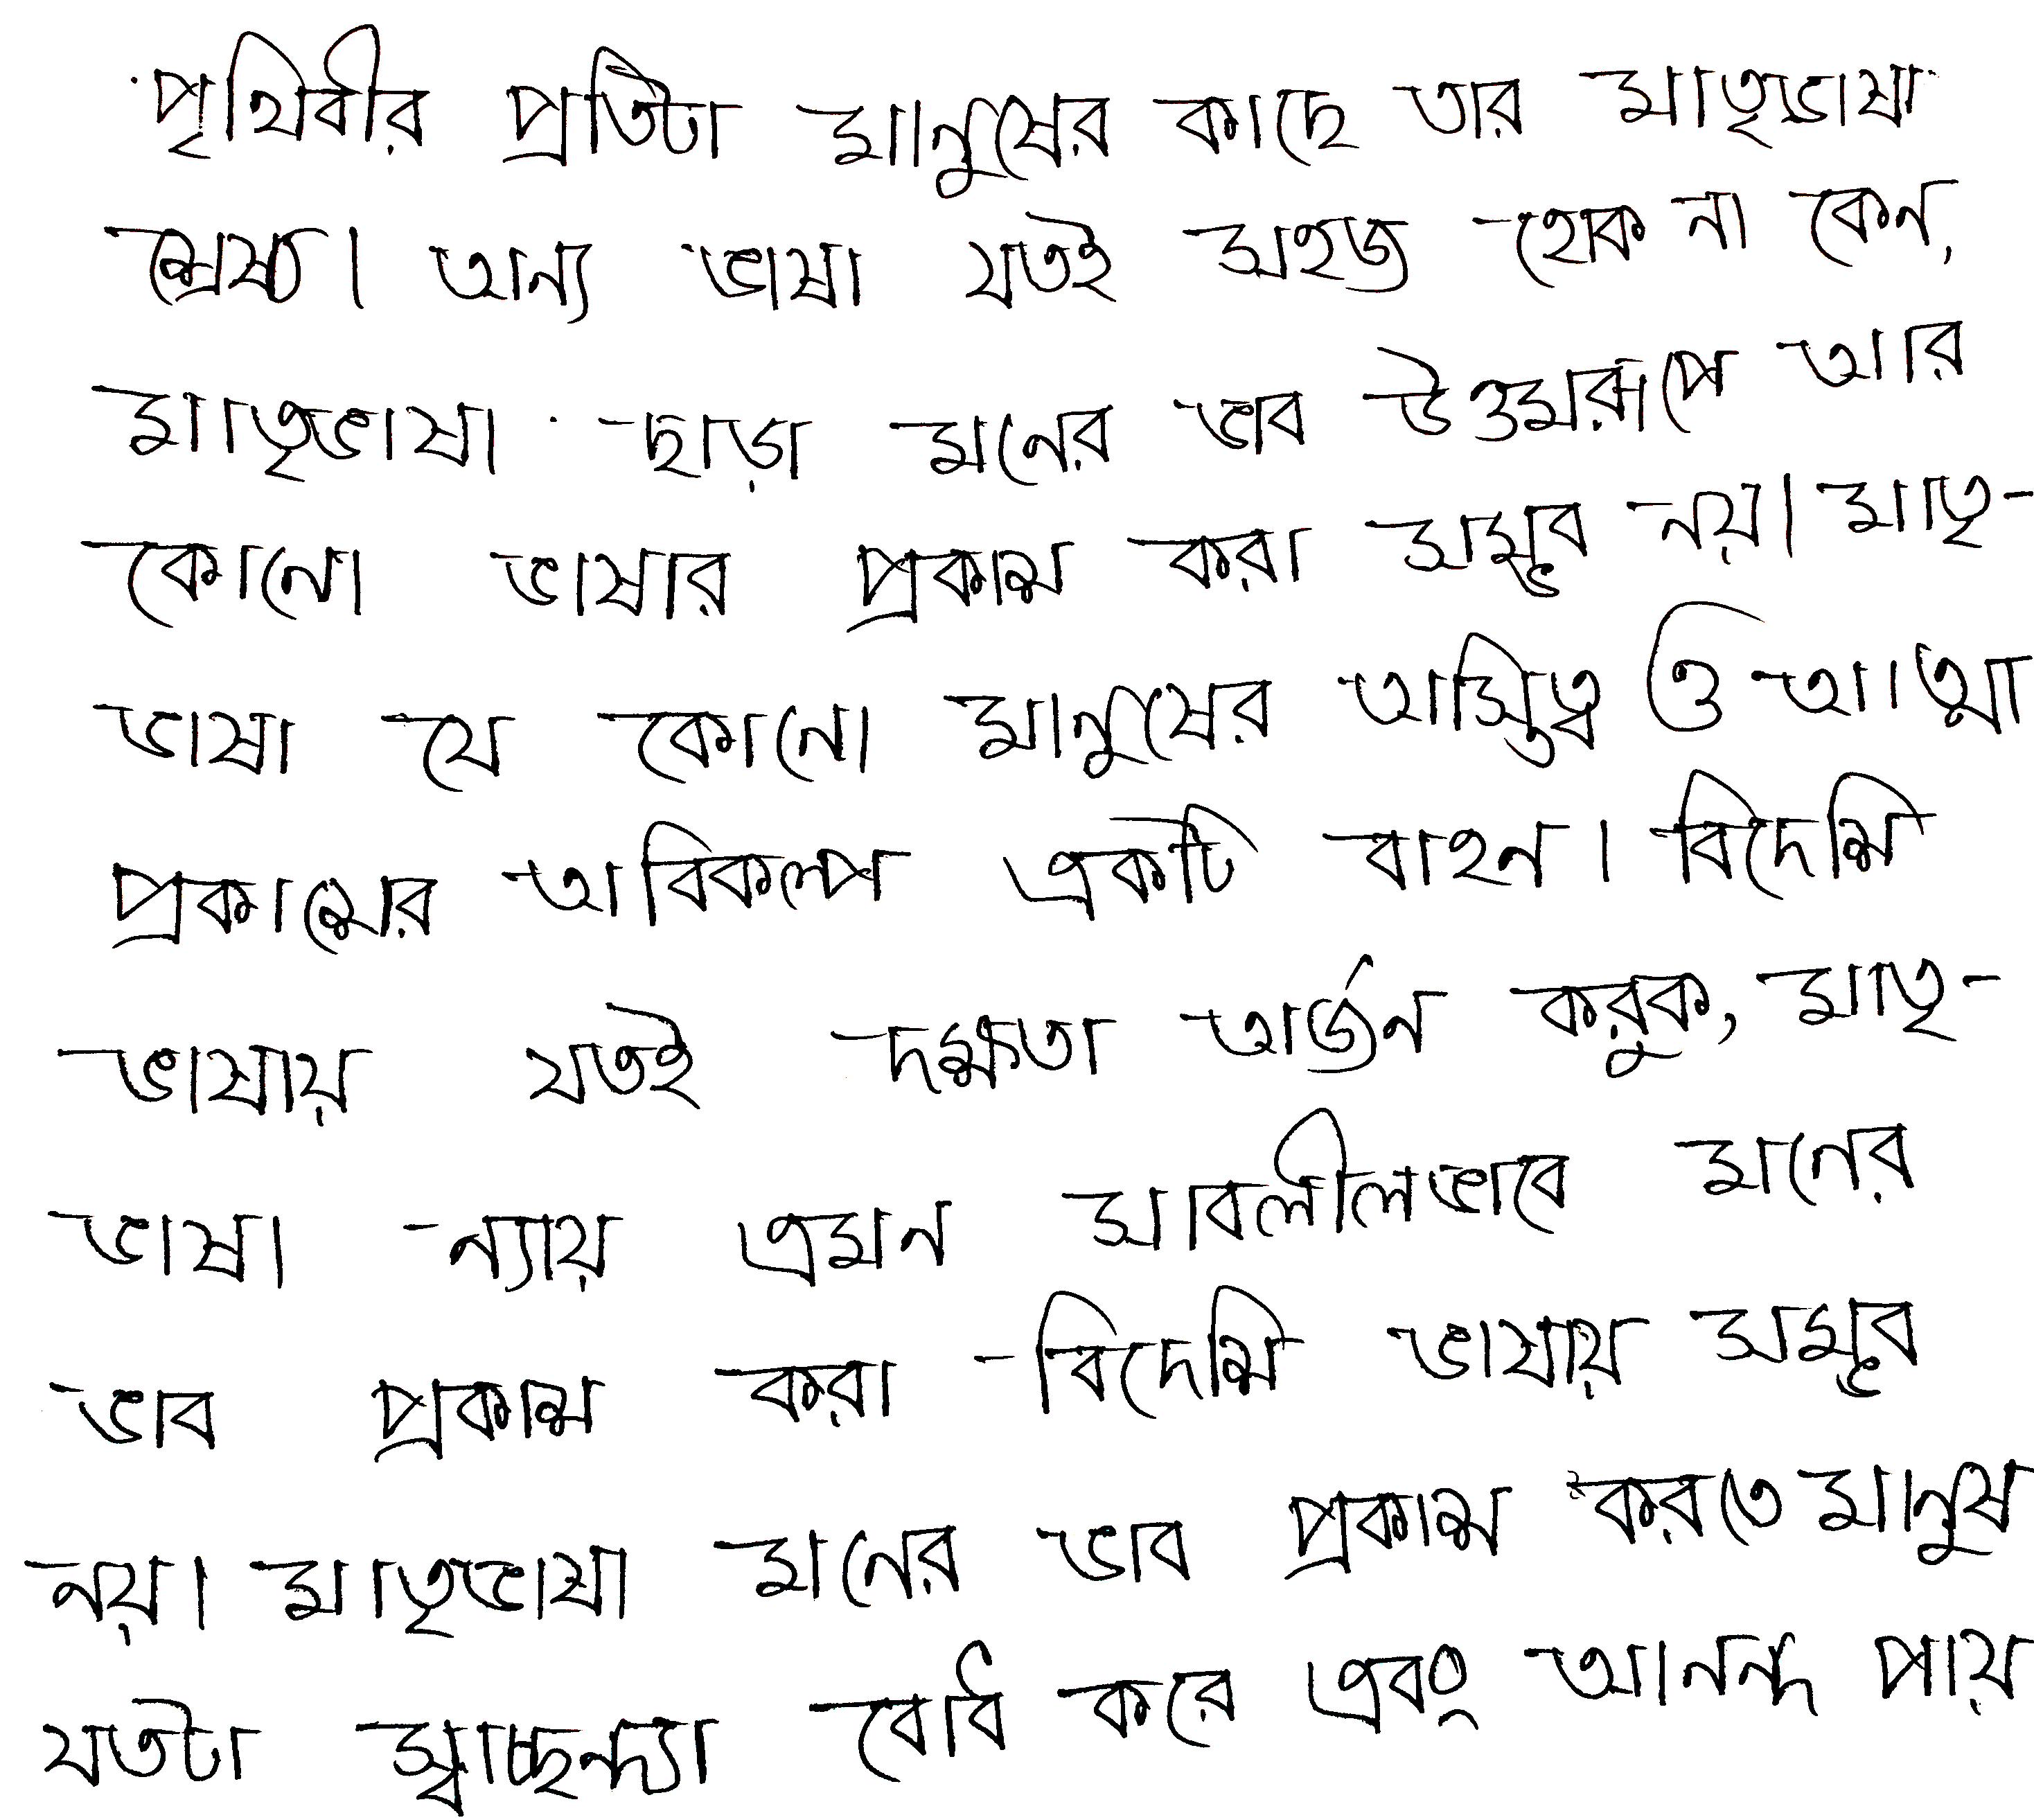 পৃথিবীর প্রতিটা মানুষের কাছে তার মাতৃভাষা
শ্রেষ্ঠ। অন্য ভাষা যতই সহজ হোক না কেন,
মাতৃভাষা ছাড়া মনের ভাব উত্তমরূপে আর
কোনো ভাষার প্রকাশ করা সম্ভব নয়। মাতৃ-
ভাষা যে কোনো মানুষের অস্তিত্ব ও আত্মা
প্রকাশের অবিকল্প একটি বাহন। বিদেশি
ভাষায় যতই দক্ষতা অর্জন করুক, মাতৃ-
ভাষা ন্যায় এমন সাবলীলভাবে মনের
ভাব প্রকাশ করা বিদেশি ভাষায় সম্ভব
নয়। মাতৃভাষা মনের ভাব প্রকাশ করতে মানুষ
যতটা স্বাচ্ছন্দ্যা বোধ করে এবং আনন্দ পায়